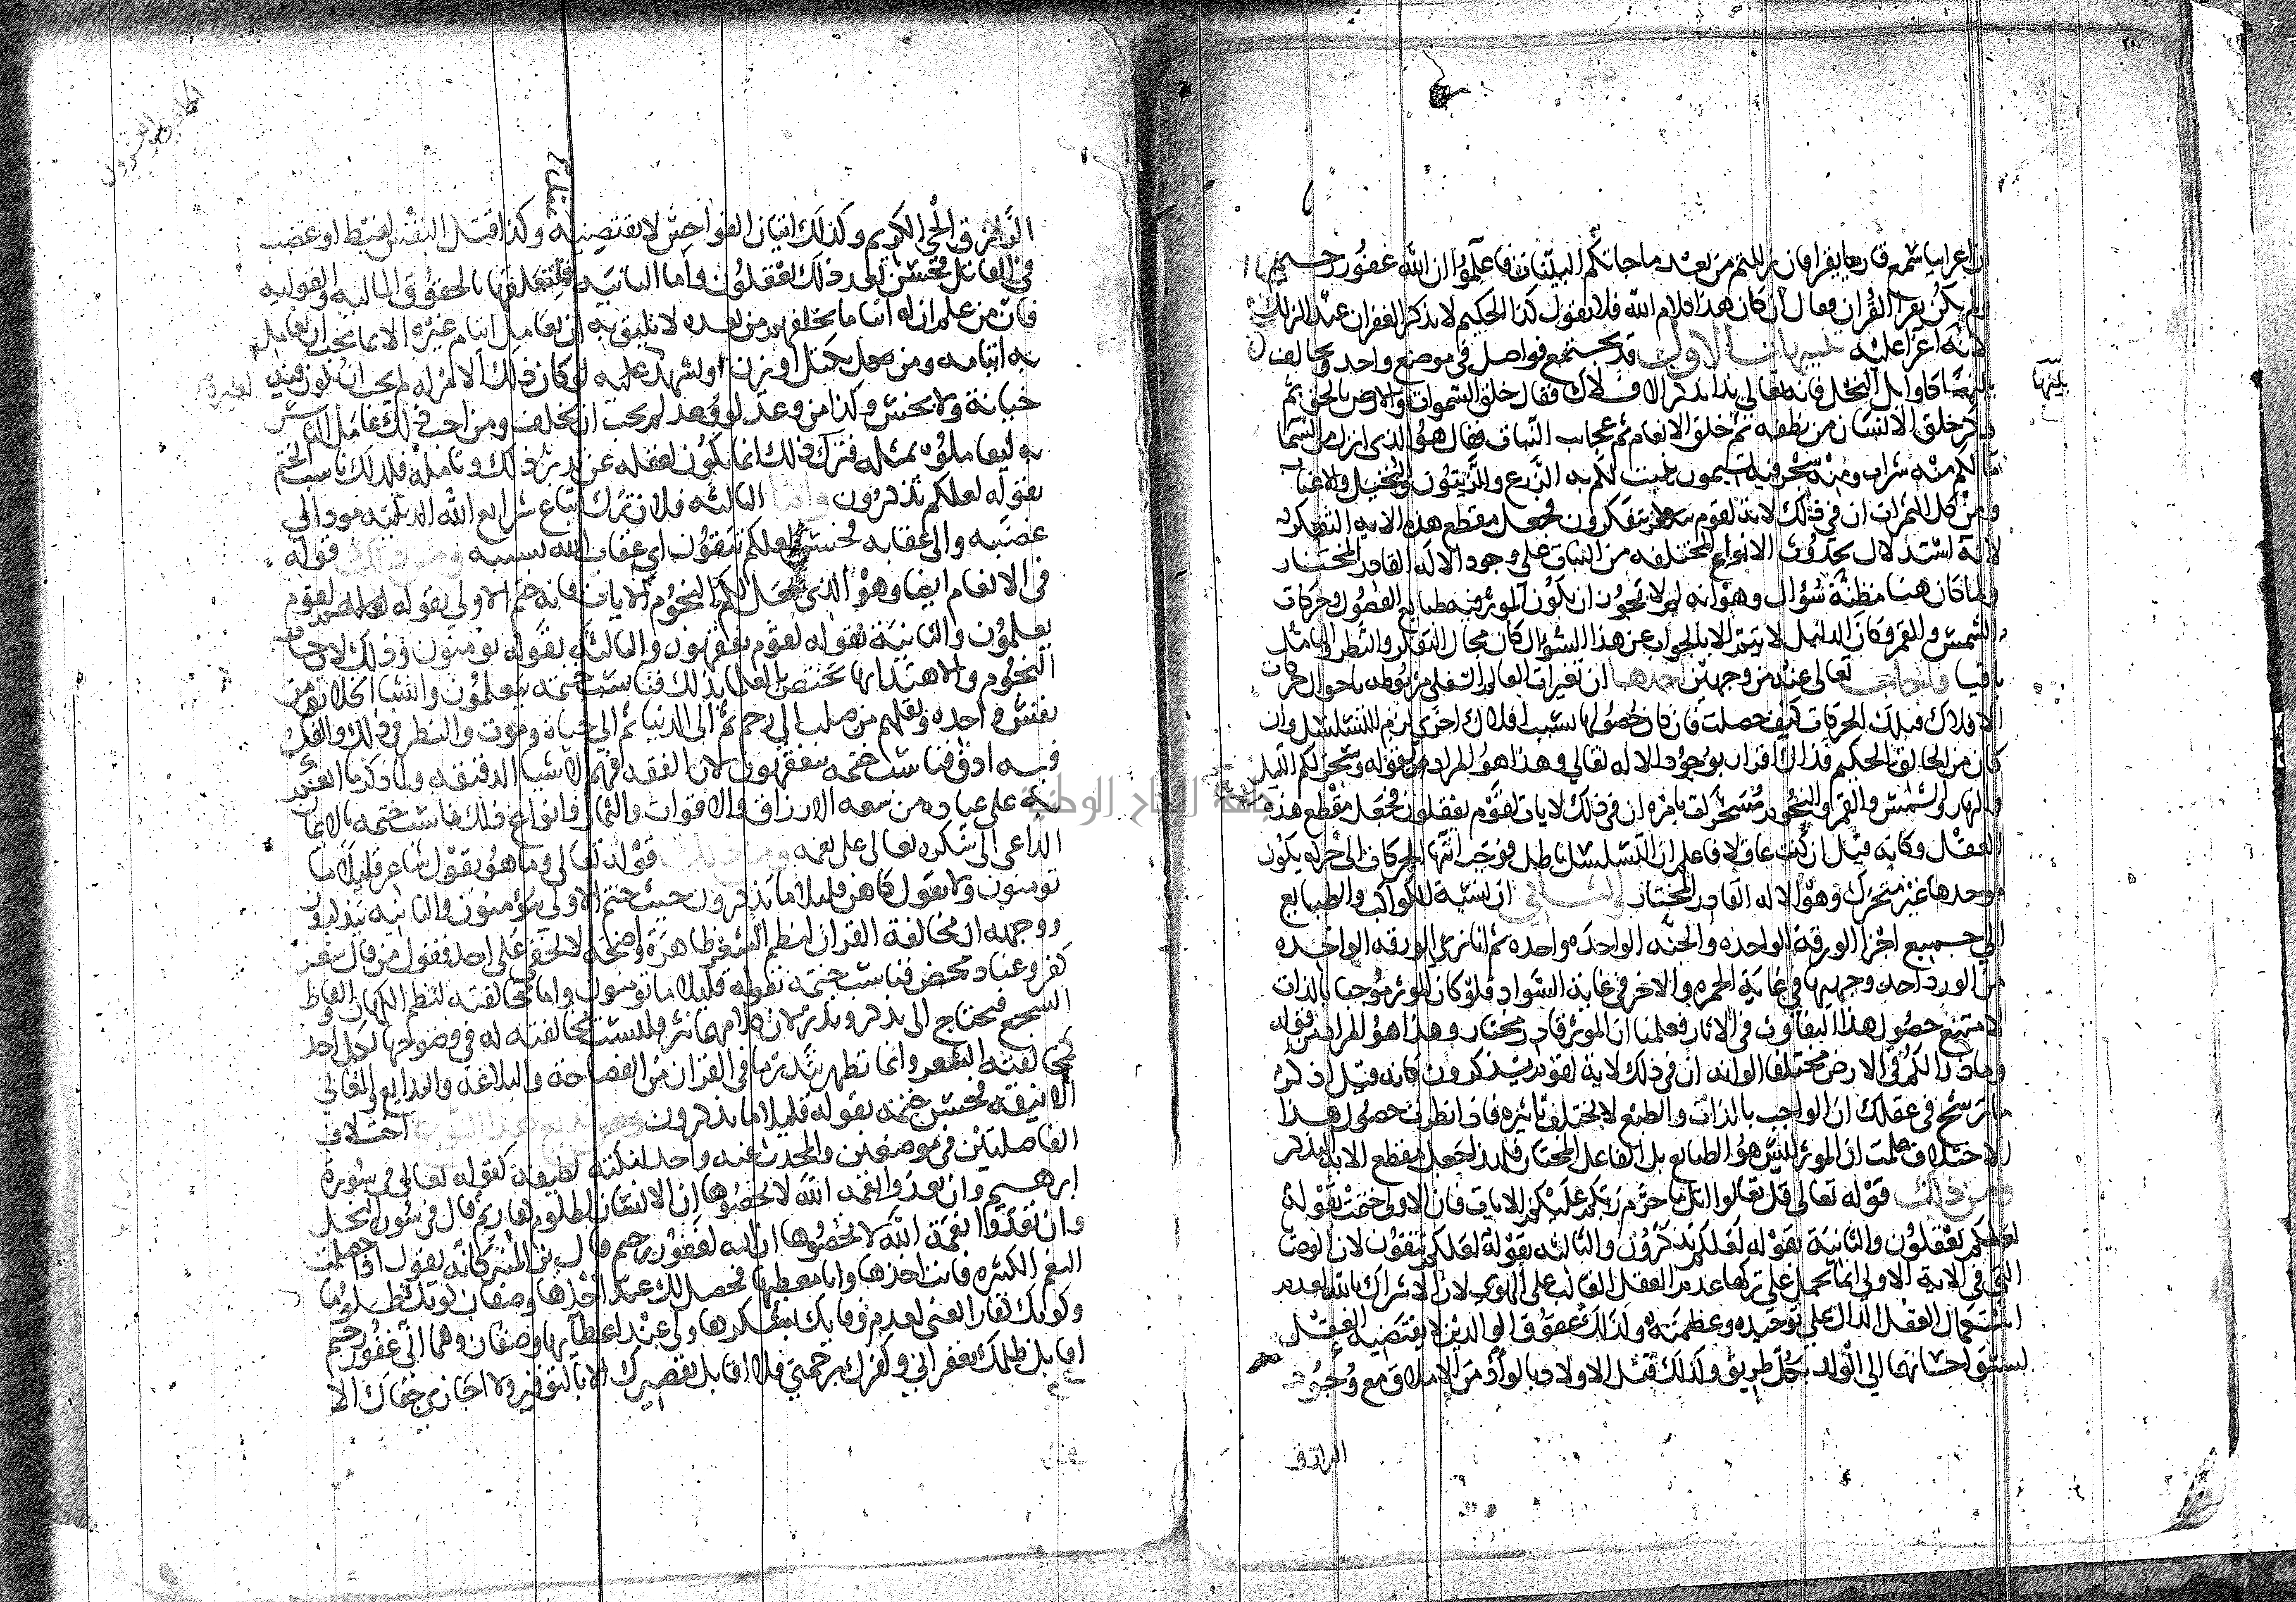 ان اعرابيا سمع قاريا يقرا فان زللتم من بعد ما جاتكم البينات فاعلموا ان الله غفور رحيم
ولم يكن يقرا القران فقال ان كان هذا كلام الله فلا يقول كذا الحكيم لا يذكر الغفران عند الزلل
لانه اغرا عليه تنبيهات الاول قد يجتمع فواصل في موضع واحد ويخالف
بينها
بينها كاوايل النحل فانه تعالى بدا بذكر الافلاك فقال خلق السموات والارض بالحق ثم
ذكر خلق الانسان من نطفه ثم خلق الانعام ثم عجايب النبات فقال هو الذي انزل من السما
ما لكم منه شراب ومنه شجر فيه تسيمون ينبت لكم به الزرع والزيتون والنخيل والاعناب
ومن كل الثمرات ان في ذلك لاية لقوم يتفكرون فجعل مقطع هذه الاية التفكر
لانه استدلال بحدوث الانواع المختلفه من النبات على وجود الاله القادر المختار
ولما كان هنا مظنة سؤال وهو انه لم لا يجوز ان يكون المؤثر فيه طبايع الفصول وحركات
الشمس والقمر وكان الدليل لا يتم الا بالجواب عن هذا السؤال كان مجال التفكر والنظر والتامل
باقيا فاجاب تعالى عنه من وجهين احدها ان تغيرات العالم السفلي مربوطه باحوال حركات
الافلاك فتلك الحركات كيف حصلت فان كان حصولها بسبب افلاك اخرى لزم التسلسل وان
كان من الخالق الحكيم فذاك اقرار بوجود الاله تعالى وهذا هو المراد من قوله وسخر لكم الليل
والنهار والشمس والقمر والنجوم مسخرات بامره ان في ذلك لايات لقوم يعقلون فجعل مقطع هذه
العقل وكانه قيل ان كنت عاقلا فاعلم ان التسلسل باطل فوجب انتها الحركات الى حركه يكون
موجدها غير متحرك وهو الاله القادر المختار والثاني ان نسبة الكواكب والطبايع
الى جميع اجزا الورقة الواحده والحبه الواحده واحده ثم انا نرى الورقه الواحده
من الورد احد وجهيها في غاية الحمره والاخر في غاية السواد فلو كان المؤثر موجبا بالذات
لامتنع حصول هذا التفاوت في الاثار فعلمنا ان المؤثر قادر مختار وهذا هو المراد من قوله
وما ذرا لكم في الارض مختلفا الوانه ان في ذلك لاية لقوم يذكرون كانه قيل اذكر
ما ترسخ في عقلك ان الواجب بالذات والطبع لا يختلف تاثيره فاذا نظرت حصول هذا
الاختلاف علمت ان المؤثر ليس هو الطبايع بل الفاعل المختار فلهذا جعل مقطع الاية التذكر
ومن ذلك قوله تعالى قل تعالوا اتل ما حرم ربكم عليكم الايات فان الاولى ختمت بقوله
لعلكم تعقلون والثانية بقوله لعلكم تذكرون والثالثه بقوله لعلكم تتقون لان الوصايا
التي في الاية الاولى انما يحمل على تركها عدم العقل الغالب على الهوى لان الاشراك بالله لعدم
استعمال العقل الدال على توحيده وعظمته وكذلك عقوق الوالدين لا يقتضيه العقل
لسبق احسانهما الى الولد بكل طريق وكذلك قتل الاولاد بالواد من الاملاق مع وجود
الرازق
الرازق الحي الكريم وكذلك اتيان الفواحش لا يقتضيه وكذا قتل النفس لغيظ او غضب
في القاتل فحسن بعد ذلك تعقلون واما الثانية فلتعلقها بالحقوق المالية والقولية
فان من علم ان له ايتاما يخلفهم من بعده لا يليق به ان يعامل ايتام غيره الا بما يحب ان يعامل
به ايتامه ومن يكيل او يزن او يشهد لغيره لو كان ذلك الامر له لم يحب ان يكون فيه
خيانة ولا بخس وكذا من وعد لو وعد لم يحب ان يخلف ومن احب ذلك عامل الناس
به ليعاملوه بمثله فترك ذلك انما يكون لغفله عن تدبر ذلك وتامله فلذلك ناسب الختم
بقوله لعلكم تذكرون واما الثالثه فلان ترك اتباع شرايع الله الدينية مود الى
غضبه والى عقابه فحسن لعلكم تتقون اي عقاب الله بسببه ومن ذلك قوله
في الانعام ايضا وهو الذي جعل لكم النجوم الايات فانه ختم الاولى بقوله لقوم
يعلمون والثانية بقوله لقوم يفقهون والثالثة بقوله لقوم يومنون وذلك لان حساب
النجوم والاهتدا بها يختص بالعلما بذلك فناسب ختمه بيعلمون وانشا الخلايق من
نفس واحده ونقلهم من صلب الى رحم ثم الى الدنيا ثم الى حياة وموت والنظر في ذلك والفكر
فيه ادق فناسب ختمه بيفقهون لان الفقه فهم الاشيا الدقيقه ولما ذكر ما انعم
به على عباده من سعه الارزاق والاقوات والثمار وانواع ذلك ناسب ختمه بالايمان
الداعي الى شكره تعالى على نعمه ومن ذلك قوله تعالى وما هو بقول شاعر قليلا ما
تومنون ولا بقول كاهن قليلا ما تذكرون حيث ختم الاولى بتؤمنون والثانيه بتذكرون
ووجهه ان مخالفة القران لنظم الشعر ظاهرة واضحه لا تخفى على احد فقول من قال شعر
كفر وعناد محض فناسب ختمه بقوله قليلا ما تومنون واما مخالفته لنظم الكهان والفاظ
السجع فيحتاج الى تذكر وتدبر لان كلا منهما نثر فليست مخالفته له في وضوحها لكل احد
كمخالفته الشعر وانما تظهر بتدبر ما في القران من الفصاحة والبلاغه والبدايع والمعاني
الانيقه فحسن ختمه بقوله قليلا ما تذكرون ومن بديع هذا النوع اختلاف
الفاصلتين في موضعين والمحدث عنه واحد لنكتة لطيفة كقوله تعالى في سورة
ابرهيم وان تعدوا نعمة الله لا تحصوها ان الانسان لظلوم كفار ثم قال في سورة النحل
وان تعدوا نعمة الله لا تحصوها ان الله لغفور رحيم قال بن المنير كانه يقول اذا حصلت
النعم الكثيره فانت اخذها وانا معطيها فحصل لك عند اخذها وصفان كونك ظلوما
وكونك كفارا يعني لعدم وفايك بشكرها ولي عند اعطايها وصفان وهما اني غفور رحيم
اقابل ظلمك بغفراني وكفرك برحمتي فلا اقابل تقصيرك الا بالتوفير ولا اجازي جفاك الا